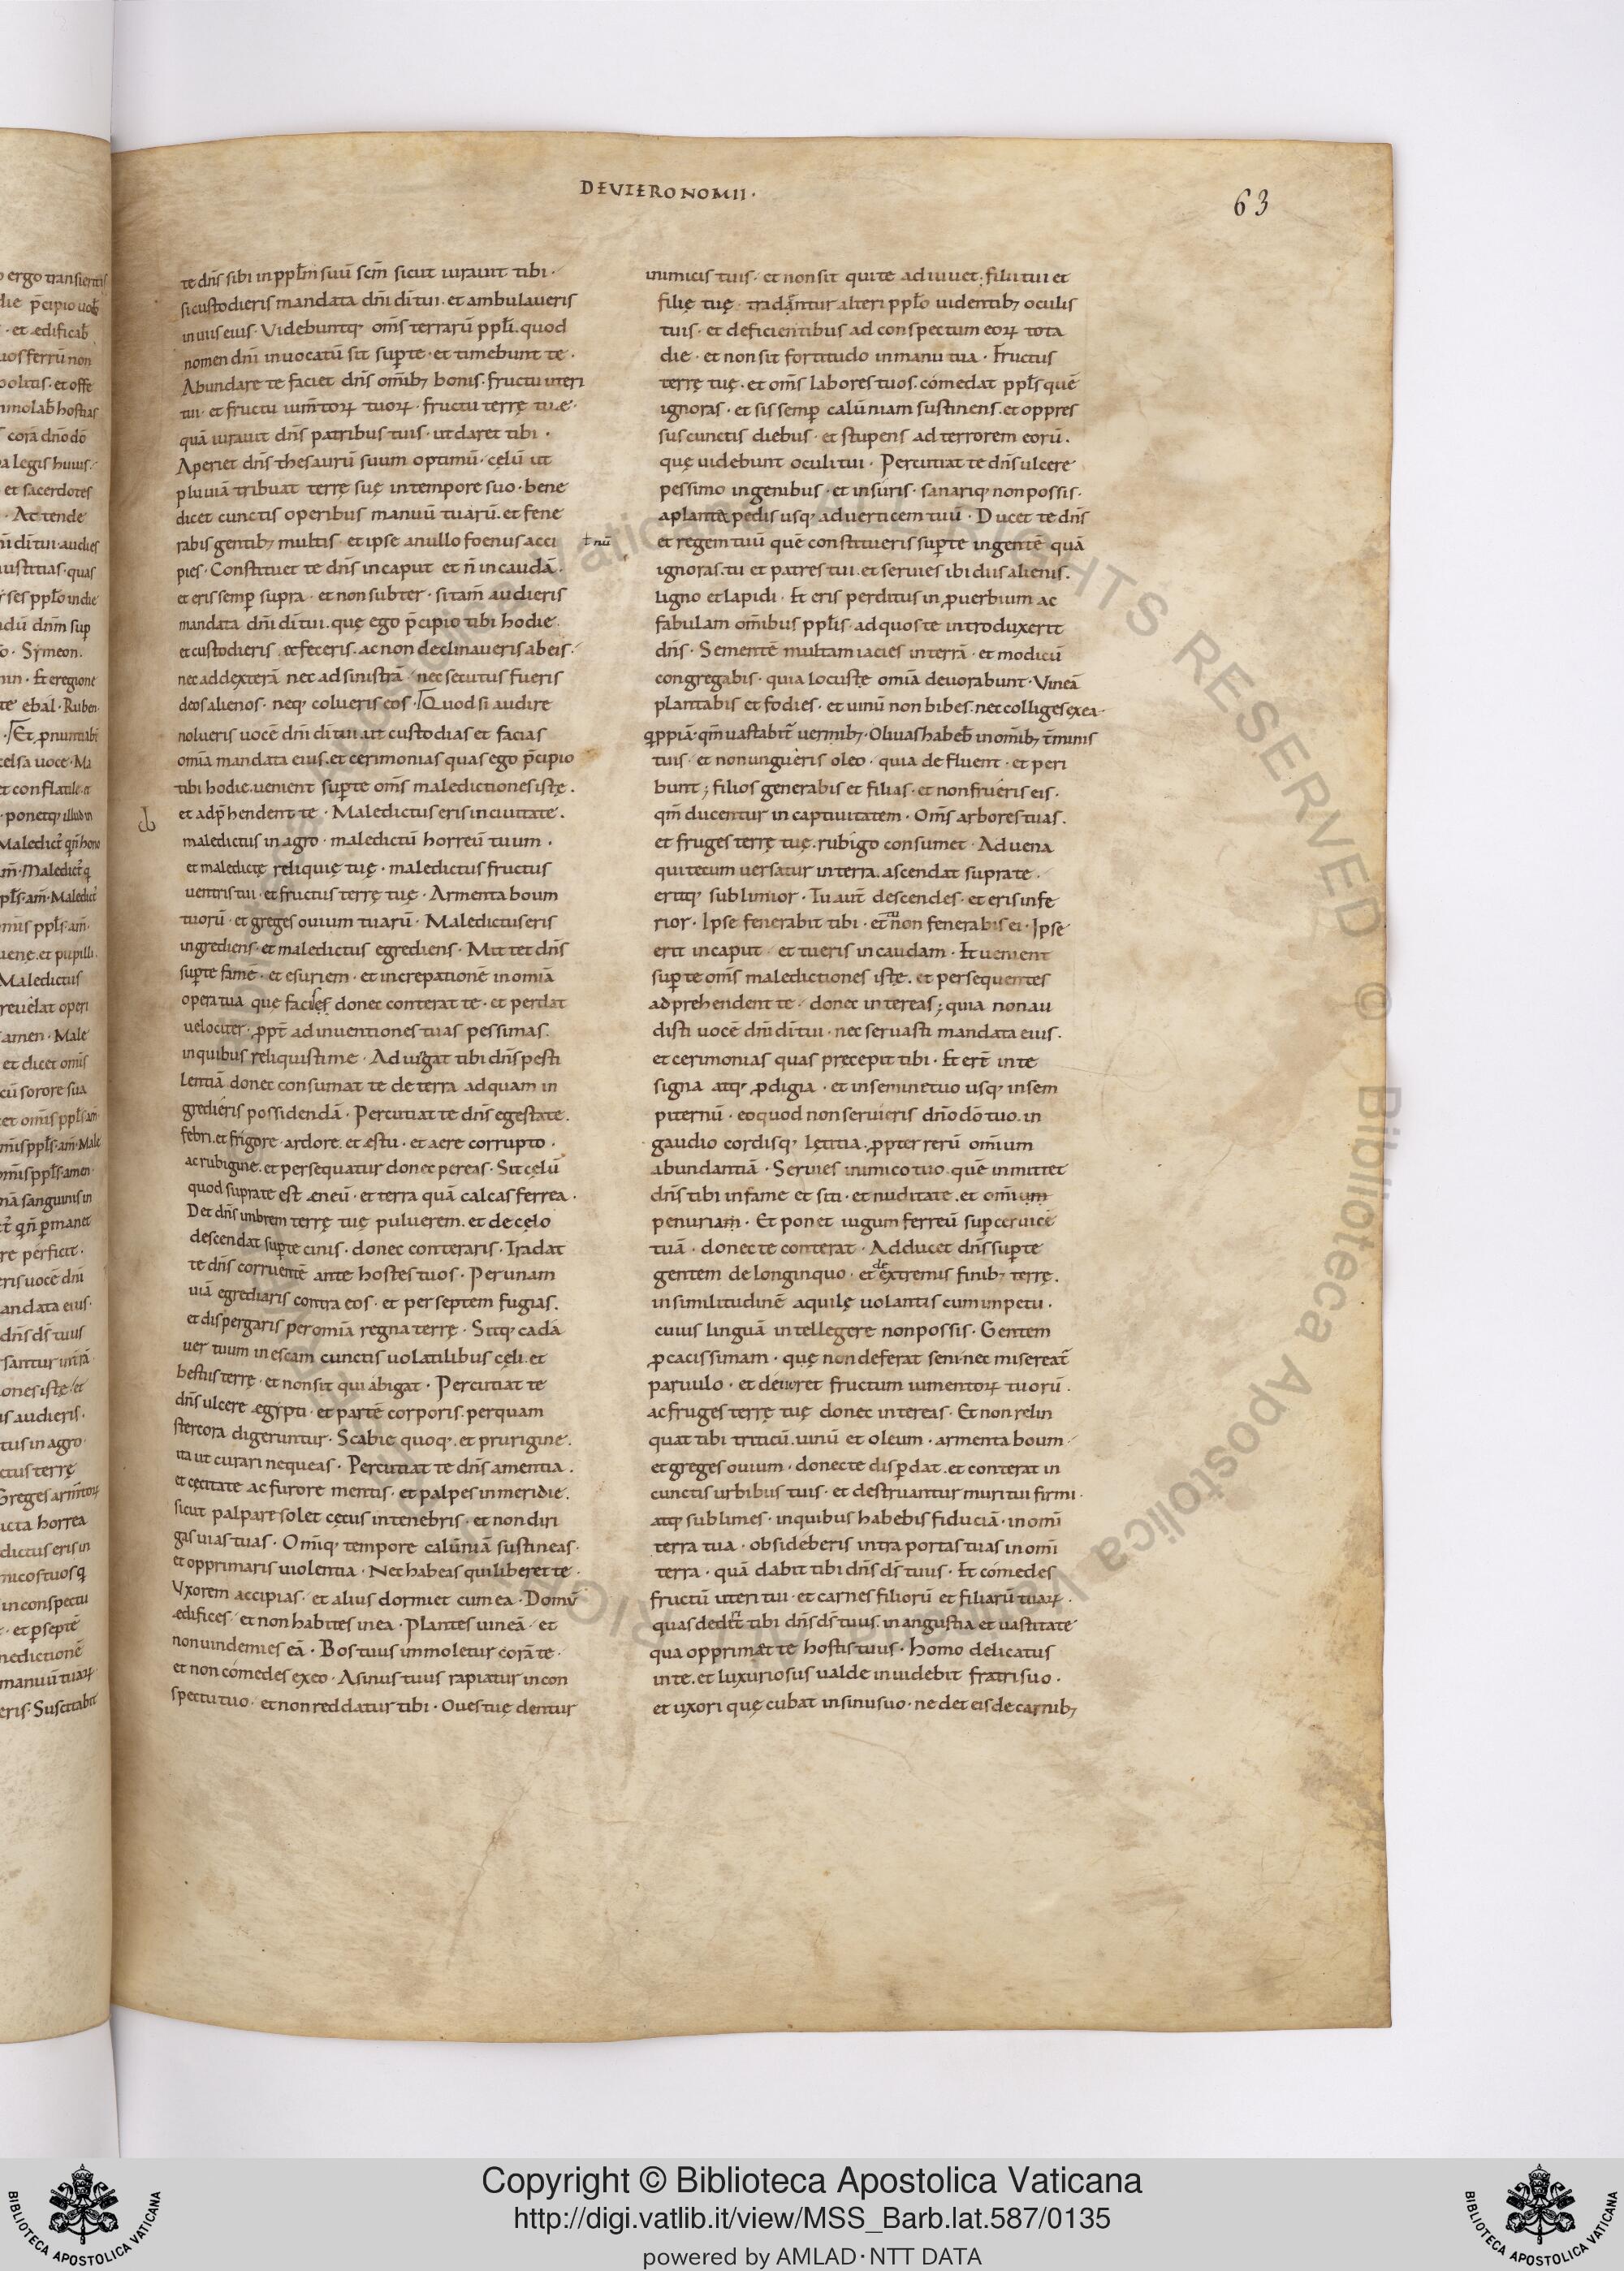 DEUTERONOMII·
63
te dñs sibi in ppłm suū scm̄ sicut iurauit tibi·
si custodieris mandata dn̄i di tui· et ambulaueris
in uiis eius· Videbuntq; om̄s terrarū ppłi· quod
nomen dn̄i inuocatū sit sup te· et timebunt te·
Abundare te faciet dn̄s om̄ib; bonis· fructu uteri
tui· et fructu ium̄torꝝ tuorꝝ· fructu terrę tuę·
quā iurauit dn̄s patribus tuis· ut daret tibi·
Aperiet dn̄s thesaurū suum optimū· cęlū ut
pluuiā tribuat terrę suę in tempore suo· bene
dicet cunctis operibus manuū tuarū· et fene
rabis gentib; multis· et ipse a nullo foenus acci
pies· Constituet te dn̄s in caput et n̄ in caudā·
et eris semp supra· et non subter· si tam̄ audieris
mandata dn̄i di tui· quę ego p̄cipio tibi hodie·
et custodieris et feceris· ac non declinaueris ab eis·
nec ad dexterā nec ad sinistrā· nec secutus fueris
deos alienos· neq; colueris eos· Quod si audire
nolueris uocē dn̄i di tui· ut custodias et facias
omīa mandata eius· et cerimonias quas ego p̄cipio
tibi hodie· uenient sup te om̄s maledictiones istę·
et adp̄hendent te· Maledictus eris in ciuitate·
maledictus in agro· maledictū horreū tuum·
et maledictę reliquię tuę· maledictus fructus
uentris tui· et fructus terrę tuę· Armenta boum
tuorū· et greges ouium tuarū· Maledictus eris
ingrediens· et maledictus egrediens· Mittet dn̄s
sup te famē· et esuriem· et increpationē in omīa
opera tua que facies donec conterat te· et perdat
velociter· ꝓpt̄ adinuentiones tuas pessimas·
in quibus reliquisti me· Adiugat tibi dn̄s pesti
lentiā donec consumat te de terra ad quam in
gredieris possidendā· Percutiat te dn̄s egestate·
febri· et frigore· ardore· et ęstu· et aere corrupto·
ac rubigine· et persequatur donec pereas· Sit cęlū
quod supra te est ęneū· et terra quā calcas ferrea·
Det dn̄s imbrem terrę tuę puluerem· et de cęlo
descendat sup te cinis· donec conteraris· Tradat
te dn̄s corruentē ante hostes tuos· Per unam
uiā egrediaris contra eos· et per septem fugias·
et dispergaris per omīa regna terrę· Sitq; cadā
uer tuum in escam cunctis uolatilibus cęli· et
bestiis terrę· et non sit qui abigat· Percutiat te
dn̄s ulcere ęgypti· et partē corporis· per quam
stercora digeruntur· Scabie quoq; et prurigine·
ita ut curari nequeas· Percutiat te dn̄s amentia·
et cęcitate ac furore mentis· et palpes in meridie·
sicut palpare solet cęcus in tenebris· et non diri
gas uias tuas· Om̄iq; tempore calūniā sustineas·
et opprimaris uiolentia· Nec habeas qui liberet te·
Vxorem accipias· et alius dormiet cum ea· Domū
ędifices· et non habites in ea· Plantes uineā· et
non uindemies eā· Bos tuus immoletur corā te·
et non comedes ex eo· Asinus tuus rapiatur in con
spectu tuo· et non reddatur tibi· Oues tuę dentur
inimicis tuis· et non sit qui te adiuuet· filii tui et
filię tuę· tradantur alteri ppło uidentib; oculis
tuis· et deficientibus ad conspectum eorꝝ tota
die· et non sit fortitudo in manu tua· Fructus
terrę tuę· et om̄s labores tuos· comedat ppłs quē
ignoras· et sis semp calūniam sustinens· et oppres
sus cunctis diebus· et stupens ad terrorem eorū·
quę uidebunt oculi tui· Percutiat te dn̄s ulcere
pessimo in genibus· et in suris· sanariq; non possis·
a planta pedis usq; ad uerticem tuū· Ducet te dn̄s
et regem tuū quē constitueris sup te in gentē quā
ignoras· tu et patres tui· et seruies ibi diis alienis·
ligno et lapidi· Et eris perditus in ꝓuerbium ac
fabulam om̄ibus ppłis· ad quos te introduxerit
dn̄s· Sementē multam iacies in terrā· et modicū
congregabis· quia locustę omīa deuorabunt· Vineā
plantabis et fodies· et uinū non bibes· nec colliges ex ea
qͥppiā· qm̄ uastabit̄ uermib;· Oliuas habeb̄ in om̄ib; t̄minis
tuis· et non ungueris oleo· quia defluent· et peri
bunt; filios generabis et filias· et non frueris eis·
qm̄ ducentur in captiuitatem· Om̄s arbores tuas·
et fruges terrę tuę· rubigo consumet· Aduena
qui tecum uersatur in terra· ascendat supra te·
eritq; sublimior· Tu aut̄ descendes· et eris infe
rior· Ipse fenerabit tibi· et tu non fenerabis ei· Ipse
erit in caput· et tu eris in caudam· Et uenient
sup te om̄s maledictiones istę· et persequentes
adprehendent te· donec intereas; quia non au
disti uocē dn̄i di tui· nec seruasti mandata eius·
et cerimonias quas pręcepit tibi· Et er̄t in te
signa atq; ꝓdigia· et in semine tuo usq; in sem
piternū· eo quod non seruieris dn̄o dō tuo· in
gaudio cordisq; lętitia· ꝓpter rerū om̄ium
abundantiā· Seruies inimico tuo· quē inmittet
dn̄s tibi in fame et siti· et nuditate· et om̄ium
penuriam· Et ponet iugum ferreū sup ceruicē
tuā· donec te conterat· Adducet dn̄s sup te
gentem de longinquo· et de extremis finib; terrę·
in similitudinē aquilę uolantis cum impetu·
cuius linguā intellegere non possis· Gentem
ꝓcacissimam· quę non deferat seni· nec misereat̄
paruulo· et deuoret fructum iumentorꝝ tuorū·
ac fruges terrę tuę donec intereas· Et non relin
quat tibi triticū· uinū et oleum· armenta boum·
et greges ouium· donec te disperdat· et conterat in
cunctis urbibus tuis· et destruantur muri tui firmi·
atq; sublimes· in quibus habebis fiduciā· in omī
terra tua· obsideberis intra portas tuas in omī
terra· quā dabit tibi dn̄s ds̄ tuus· Et comedes
fructū uteri tui· et carnes filiorū et filiarū tuarꝝ·
quas dedit tibi dn̄s ds̄ tuus· in angustia et uastitate
qua opprimet te hostis tuus· Homo delicatus
in te· et luxuriosus ualde inuidebit fratri suo·
et uxori quę cubat in sinu suo· ne det eis de carnib;
Copyright © Biblioteca Apostolica Vaticana
http://digi.vatlib.it/view/MSS_Barb.lat.587/0135
powered by AMLAD·NTT DATA
BIBLIOTECA APOSTOLICA VATICANA
BIBLIOTECA APOSTOLICA VATICANA